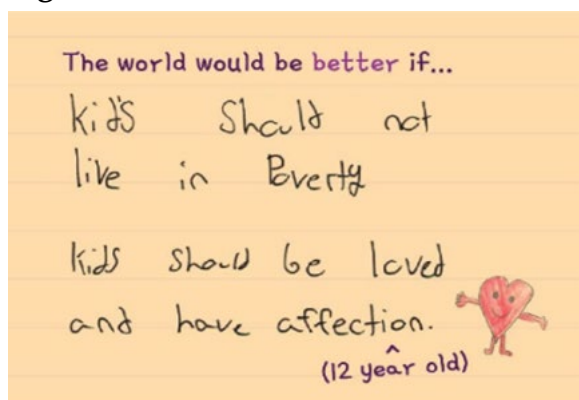 The world would be better if...
kid's Should not
live in Poverty
kids should be loved
and have affection.
(12 year old)